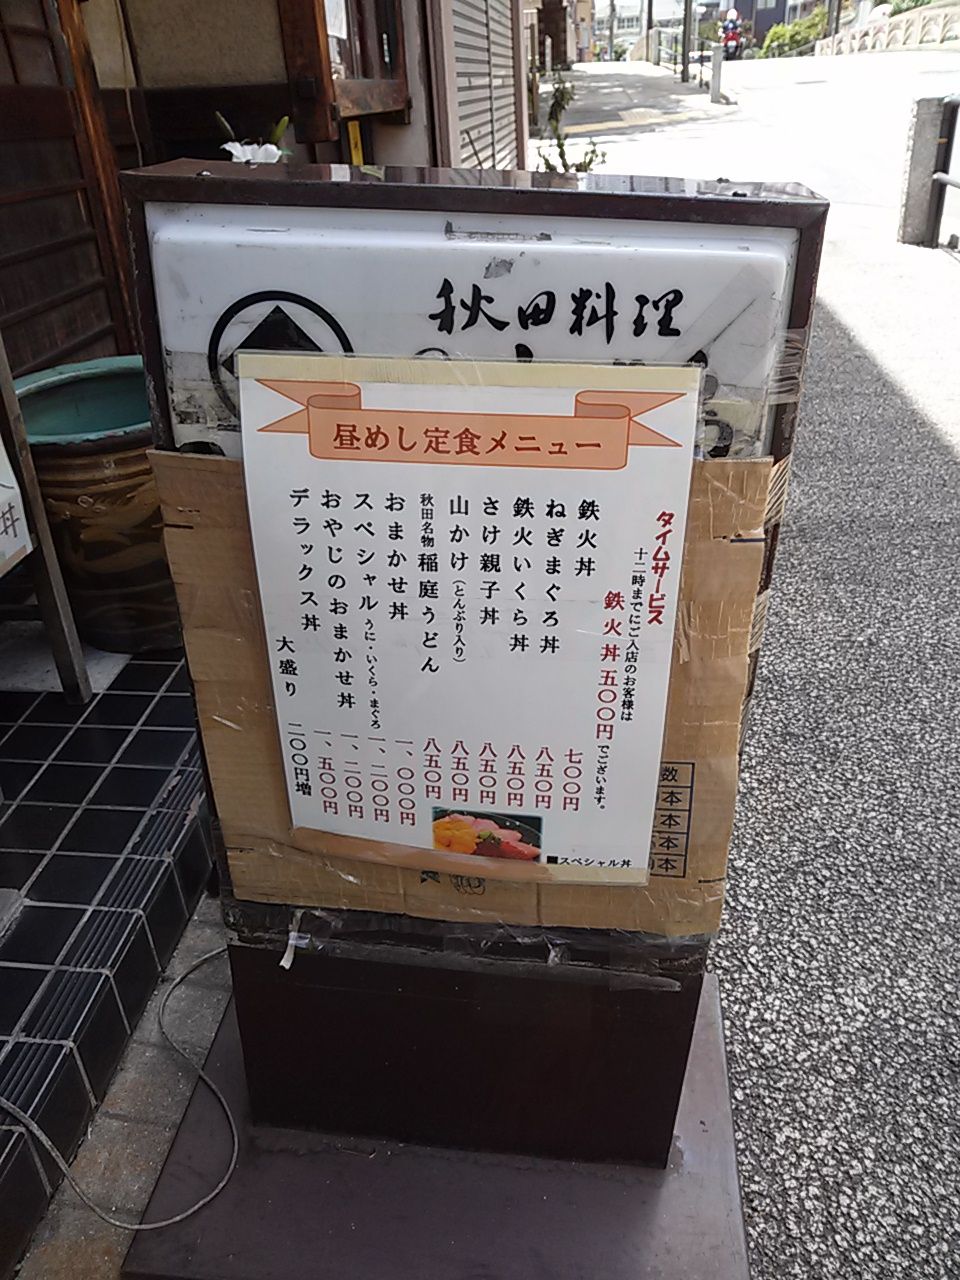 秋田料理
昼めし定食メニュー
タイムサービス
十二時までにご入店のお客様は
鉄火丼五〇〇円でございます。
鉄火丼 七〇〇円
ねぎまぐろ丼 八五〇円
鉄火いくら丼 八五〇円
さけ親子丼 八五〇円
山かけ(とんぶり入り) 八五〇円
秋田名物 稲庭うどん 八五〇円
おまかせ丼 一、〇〇〇円
スペシャル うに・いくら・まぐろ 一、二〇〇円
おやじのおまかせ丼 一、二〇〇円
デラックス丼 一、五〇〇円
大盛り 二〇〇円増
■スペシャル丼
数
本
本
本
本
丼